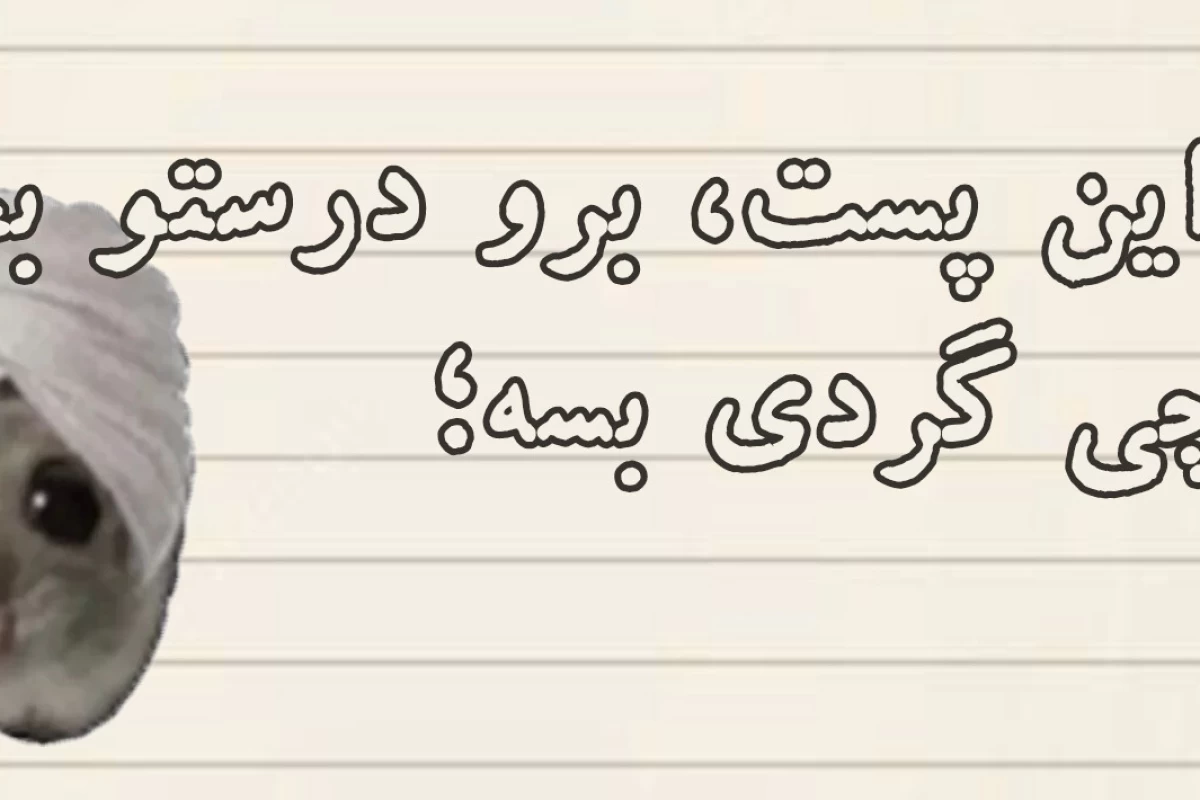 این پست، برو درستو
گردی بسه؛